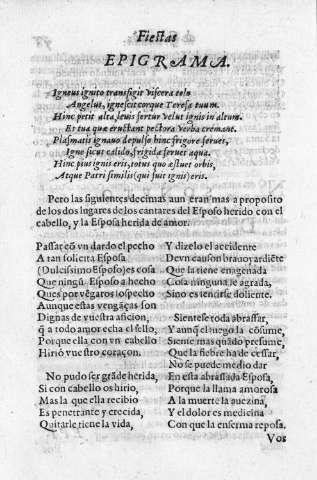 Fiestas
EPIGRAMA.
Igneus ignito transfigit viscera telo
Angelus, ignescit corque Teresa tuum.
Hinc petit alta, leuis fertur velut ignis in altum.
Et tua quæ eructant pectora verba cremant.
Plasmatis ignauo depulso hinc frigore feruet,
Igne sicut calido, frigida feruet aqua.
Hinc pius ignis eris, totus quo æstuet orbis,
Atque Patri similis (qui fuit ignis) eris.
Pero las siguientes decimas aun eran mas a proposito
de los dos lugares de los cantares del Esposo herido con el
cabello, y la Esposa herida de amor.
Passar cõ vn dardo el pecho
A tan solicita Esposa
(Dulcissimo Esposo) es cosa
Que ningũ Esposo a hecho
Ques por vẽgaros sospecho
Aunque estas vengãças son
Dignas de vuestra aficion,
q̃ a todo amor echa el sello,
Porque ella con vn cabello
Hirio vuestro coraçon.
No pudo ser grãde herida,
Si con cabello os hirio,
Mas la que ella recibio
Es penetrante y crecida,
Quitarle tiene la vida,
Y dizelo el accidente
De vn causon brauo y ardiẽte
Que la tiene enagenada
Cosa ninguna le agrada,
Sino es sentirse doliente.
Sientese toda abrassar,
Y aunq̃ el fuego la cõsume,
Siente mas quãdo presume,
Que la fiebre ha de cessar,
No se puede medio dar
En esta abrassada Esposa,
Porque la llama amorosa
A la muerte la auezina,
Y el dolor es medicina
Con que la enferma reposa.
Vos